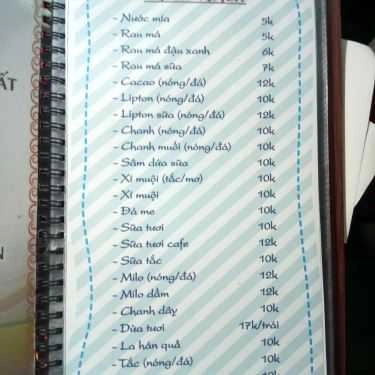 ẤT
N
- Nước mía 5k
- Rau má 5k
- Rau má đậu xanh 6k
- Rau má sữa 7k
- Cacao (nóng/đá) 12k
- Lipton (nóng/đá) 10k
- Lipton sữa (nóng/đá) 12k
- Chanh (nóng/đá) 10k
- Chanh muối (nóng/đá) 10k
- Sâm dứa sữa 10k
- Xí muội (tắc/mơ) 10k
- Xí muội 10k
- Đá me 10k
- Sữa tươi 10k
- Sữa tươi cafe 12k
- Sữa tắc 10k
- Milo (nóng/đá) 12k
- Milo dầm 12k
- Chanh dây 10k
- Dừa tươi 17k/trái
- La hán quả 10k
- Tắc (nóng/đá) 10k